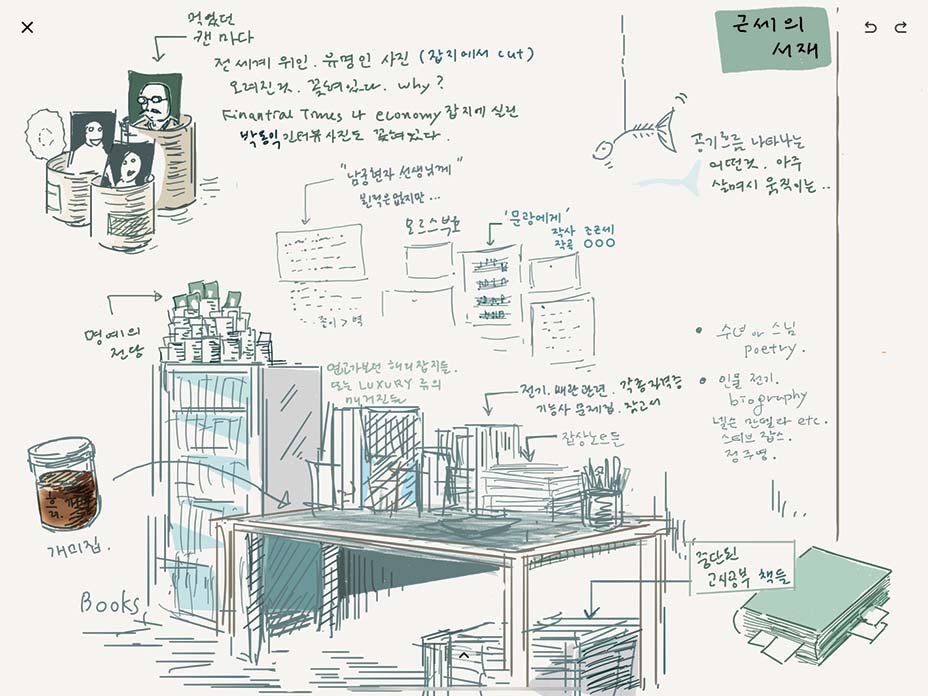 먹었던
캔 마다
전 세계 위인. 유명인 사진 (잡지에서 cut)
오려진것. 꽂혀있다. why?
Finantial Times 나 economy 잡지에 실린
박동익 인터뷰사진도 꽂혀있다.
근세의
서재
공기흐름 나타나는
어떤것. 아주
살며시 움직이는..
"남궁현자 선생님께"
뵌적은 없지만...
모르스부호
'문광에게'
작사 오근세
작곡 OOO
종이 > 벽
명예의
전당
연교가 보던 해외잡지들.
또는 LUXURY 류의
매거진들
전기. 배관 관련. 각종 자격증
기능사 문제집. 참고서
잡상노트들
수녀 or 스님
poetry.
인물 전기.
biography
넬슨 만델라 etc.
스티브 잡스.
정주영.
흙.
개미집.
Books
중단된
고시공부 책들